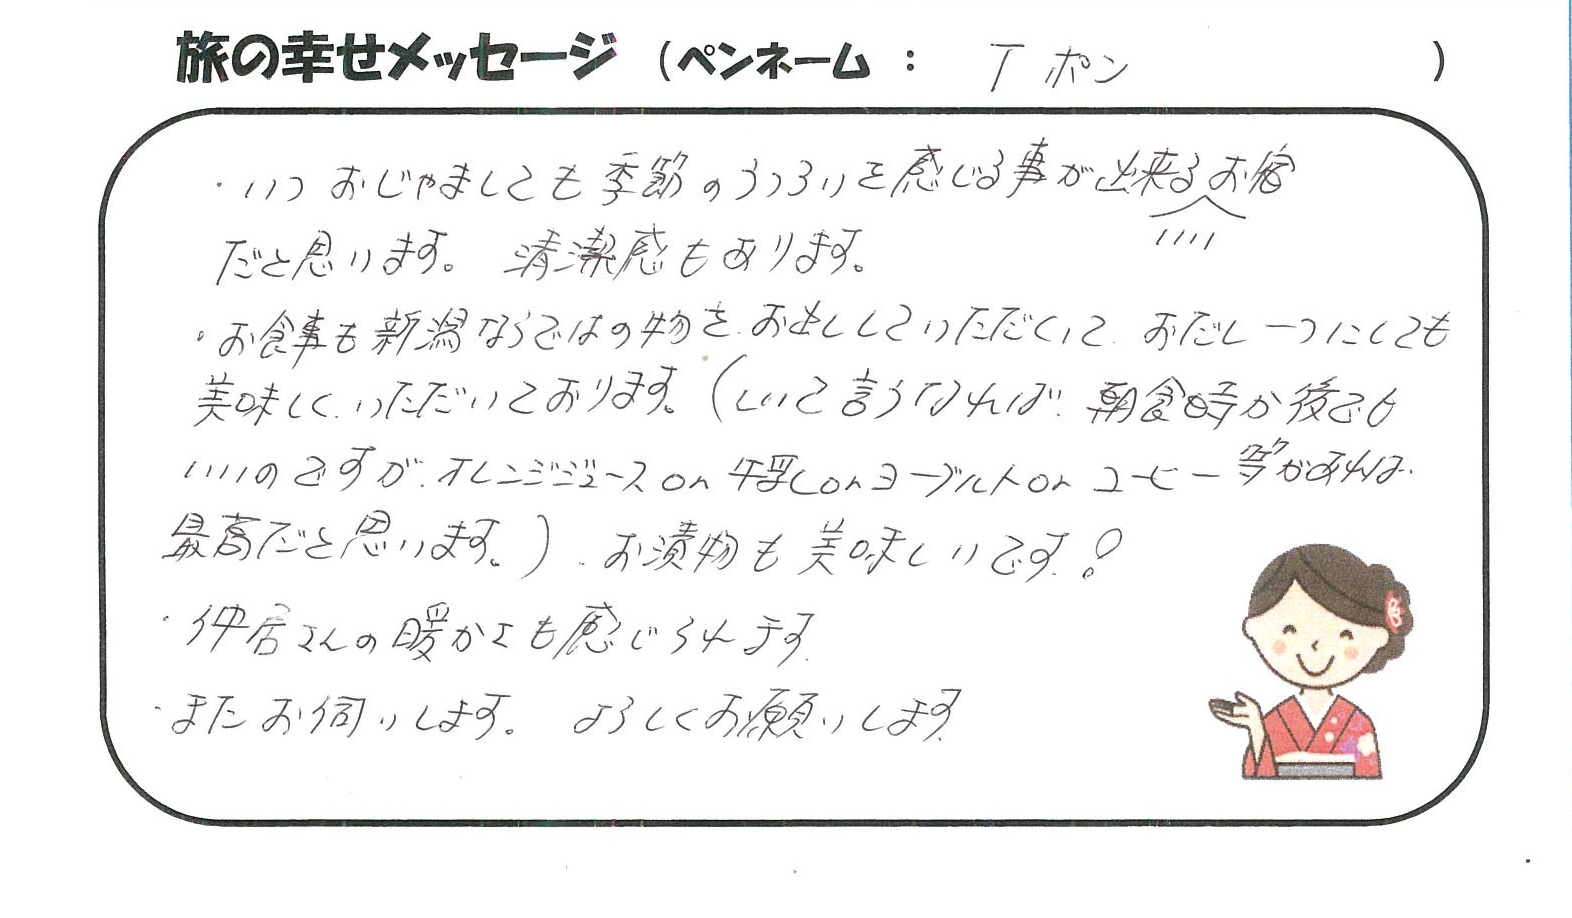 旅の幸せメッセージ（ペンネーム ： T ポン ）
・いつ おじゃましても季節のうつろいを感じる事が出来るいいお宿
だと思います。 清潔感もあります。
・お食事も新潟ならではの物を、お出ししていただくいて、おだし一つにしても
美味しく、いただいております。（しいて言うなれば、朝食時か後でも
いいのですが、オレンジジュース or 牛乳 or ヨーグルト or コーヒー等があれば、
最高だと思います。）、お漬物も美味しいです！
・仲居さんの暖かさも感じられます。
・またお伺いします。 よろしくお願いします。